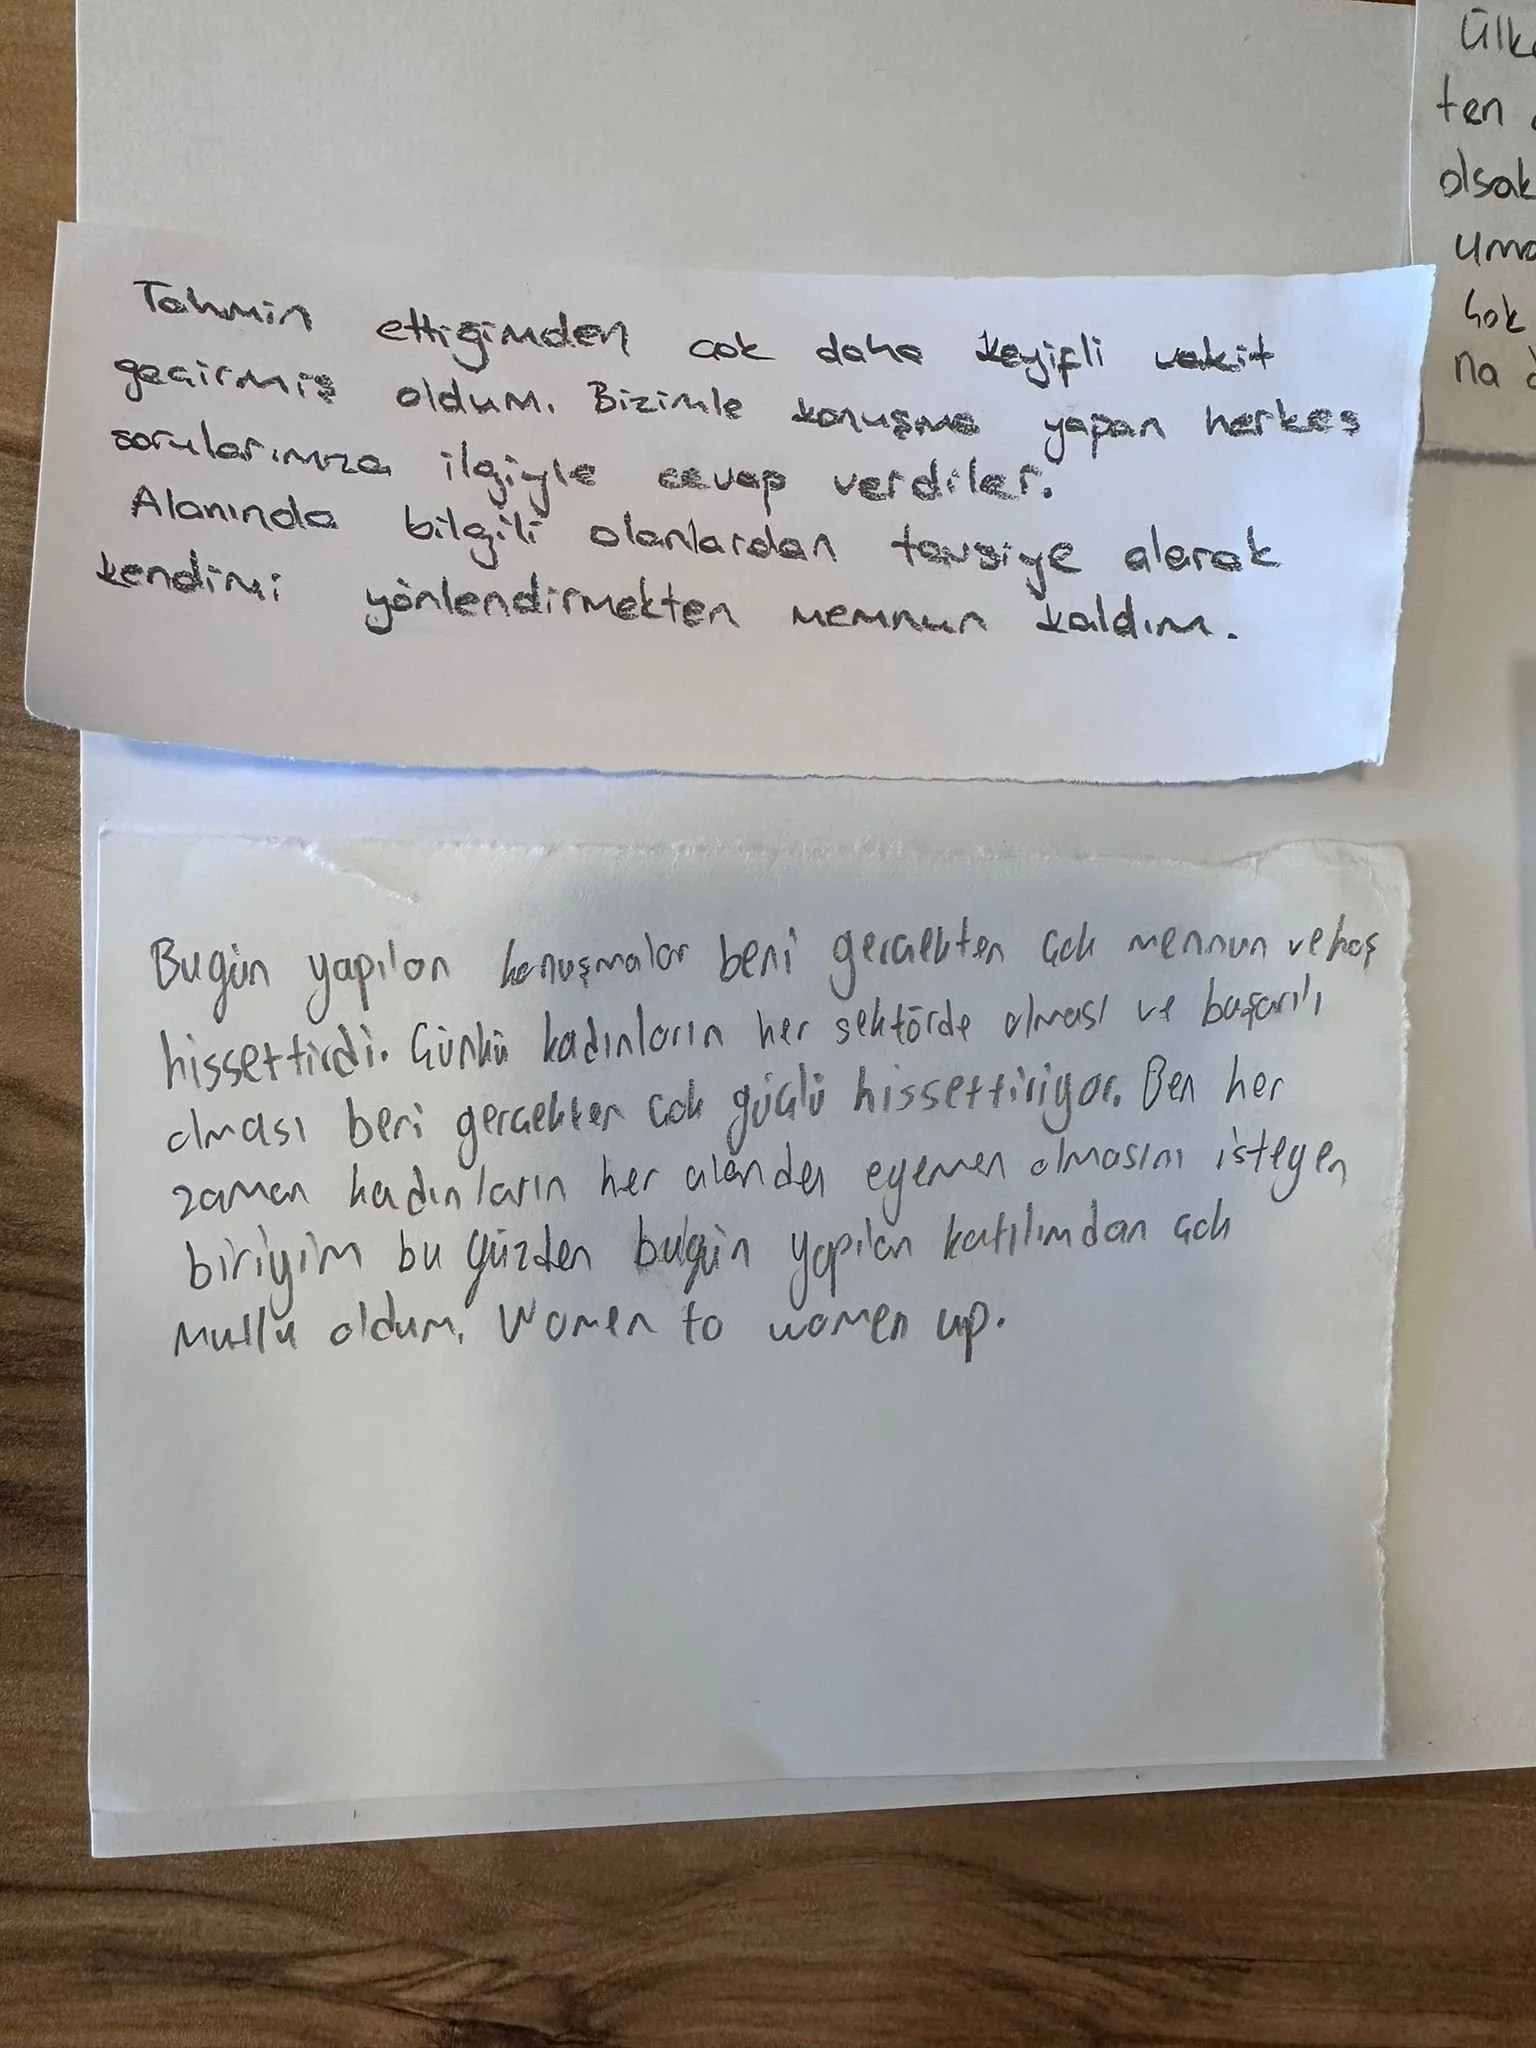 Tahmin ettiğimden çok daha keyifli vakit
geçirmiş oldum. Bizimle konuşma yapan herkes
sorularımıza ilgiyle cevap verdiler.
Alanında bilgili olanlardan tavsiye alarak
kendimi yönlendirmekten memnun kaldım.
Bugün yapılan konuşmalar beni gerçekten çok memnun ve hoş
hissettirdi. Çünkü kadınların her sektörde olması ve başarılı
olması beni gerçekten çok güçlü hissettiriyor. Ben her
zaman kadınların her alanda egemen olmasını isteyen
biriyim bu yüzden bugün yapılan katılımdan çok
mutlu oldum. Women to women up.
Ülke
ten
olsak
uma
çok
na